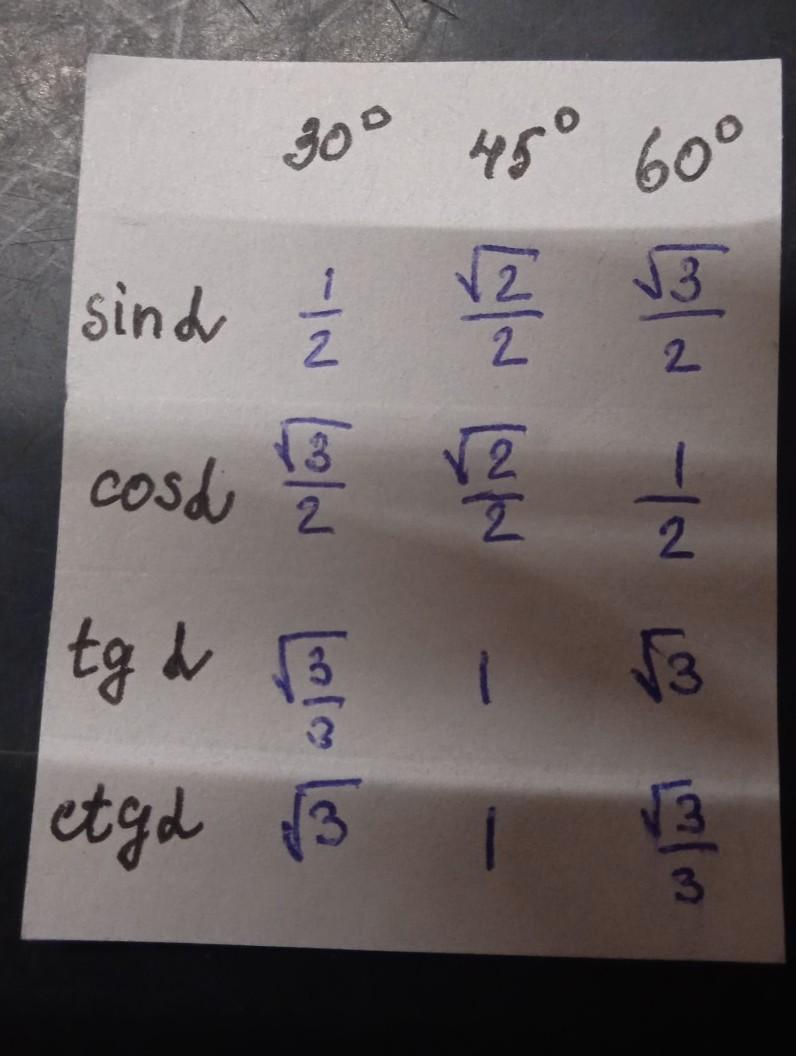 30° 45° 60°
sin α 1/2 √2/2 √3/2
cos α √3/2 √2/2 1/2
tg α √3/3 1 √3
ctg α √3 1 √3/3